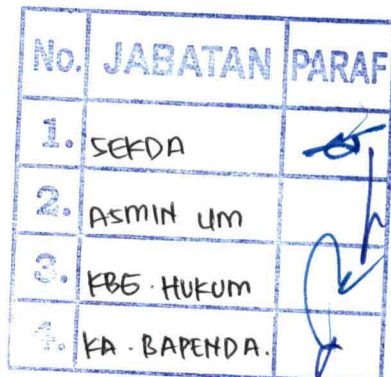 No. JABATAN PARAF
1. SEKDA
2. ASMIN UM
3. KBG. HUKUM
4. KA. BAPENDA.